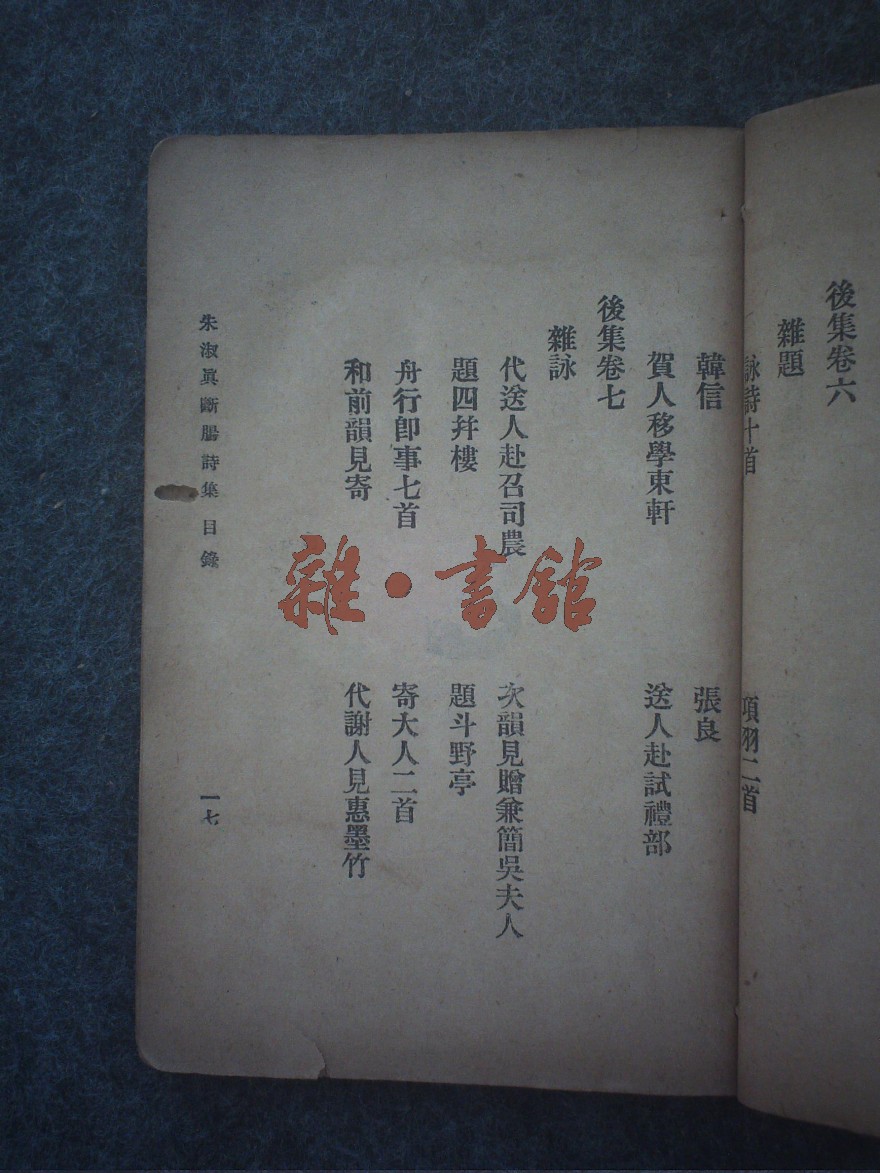 後集卷六
雜題
詠詩十首
項羽二首
韓信
張良
賀人移學東軒
送人赴試禮部
後集卷七
雜詠
代送人赴召司農
次韻見贈兼簡吳夫人
題四幷樓
題斗野亭
舟行卽事七首
寄大人二首
和前韻見寄
代謝人見惠墨竹
朱淑眞斷腸詩集 目錄
一七
雜·書館